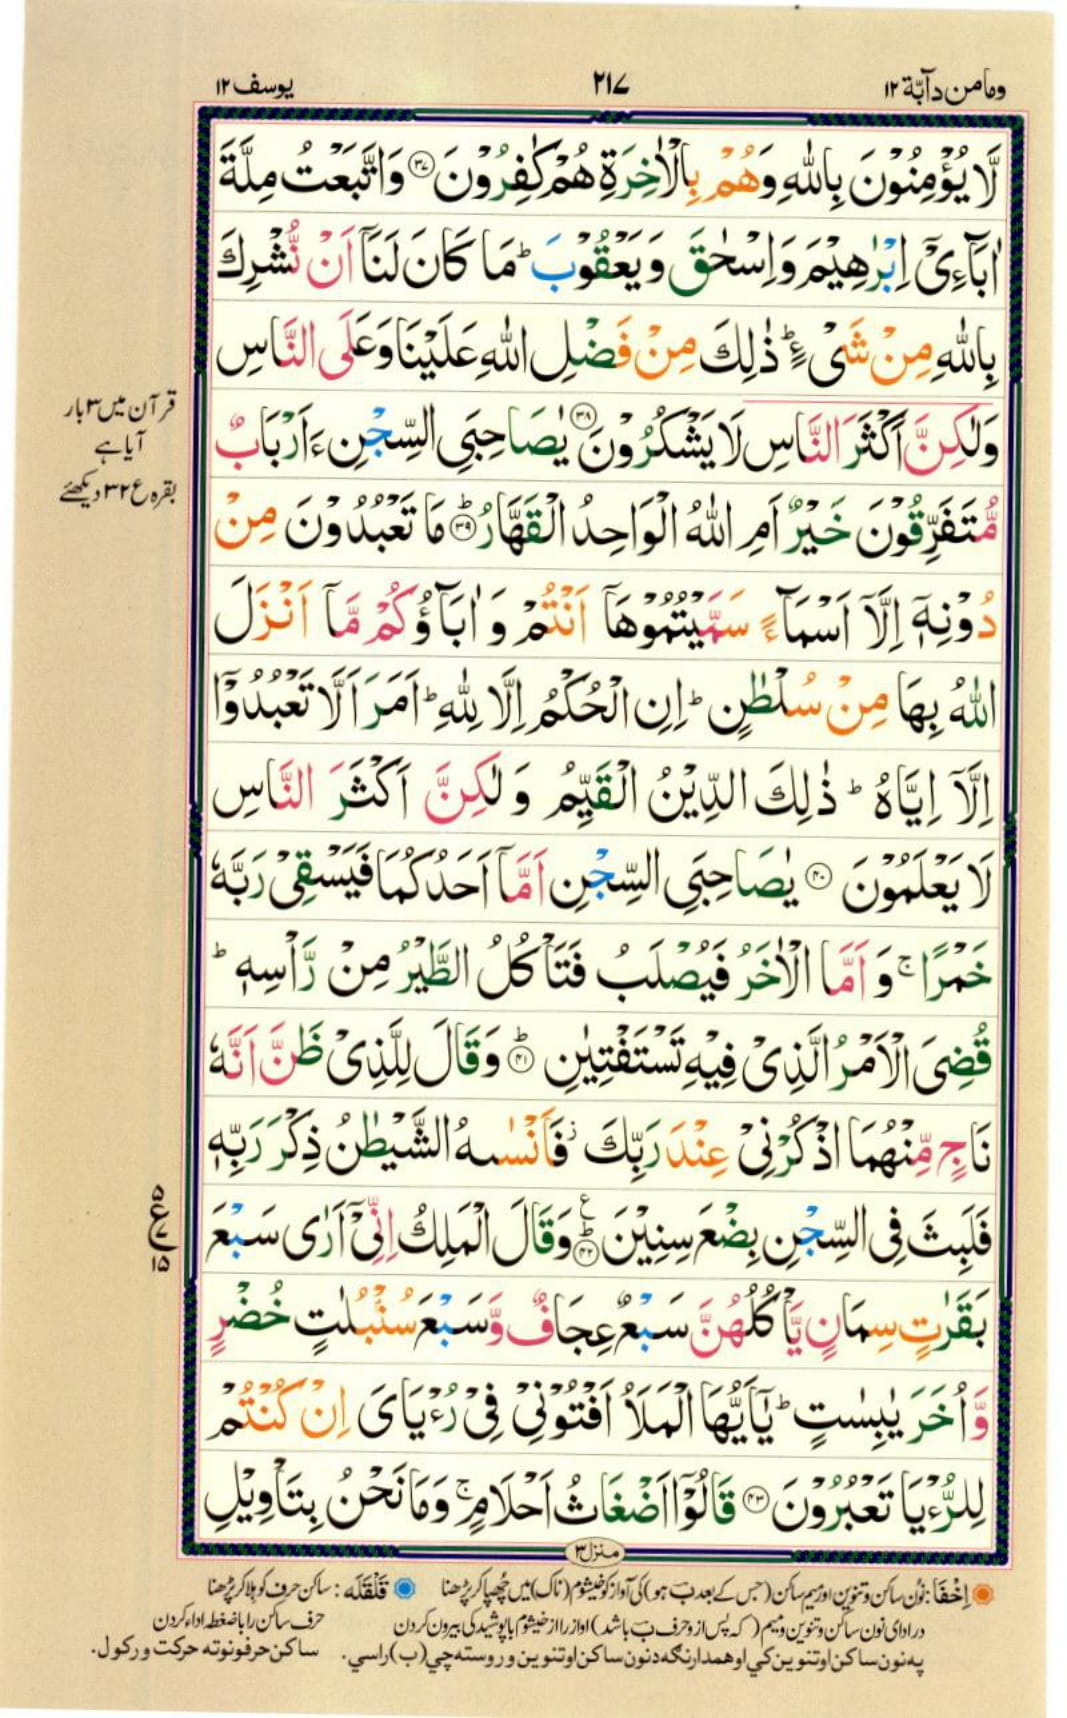 وما من دآبّة ١٢
٢١٧
يوسف ١٢
لَّا يُؤْمِنُوْنَ بِاللّٰهِ وَهُمْ بِالْاٰخِرَةِ هُمْ كٰفِرُوْنَ ﴿۳۷﴾ وَاتَّبَعْتُ مِلَّةَ
اٰبَآءِیْۤ اِبْرٰهِيْمَ وَاِسْحٰقَ وَيَعْقُوْبَ ؕ مَا كَانَ لَنَاۤ اَنْ نُّشْرِكَ
بِاللّٰهِ مِنْ شَیْءٍ ؕ ذٰلِكَ مِنْ فَضْلِ اللّٰهِ عَلَيْنَا وَعَلَى النَّاسِ
وَلٰكِنَّ اَكْثَرَ النَّاسِ لَا يَشْكُرُوْنَ ﴿۳۸﴾ يٰصَاحِبَیِ السِّجْنِ ءَاَرْبَابٌ
مُّتَفَرِّقُوْنَ خَيْرٌ اَمِ اللّٰهُ الْوَاحِدُ الْقَهَّارُ ؕ﴿۳۹﴾ مَا تَعْبُدُوْنَ مِنْ
دُوْنِهٖۤ اِلَّاۤ اَسْمَآءً سَمَّيْتُمُوْهَاۤ اَنْتُمْ وَ اٰبَآؤُكُمْ مَّاۤ اَنْزَلَ
اللّٰهُ بِهَا مِنْ سُلْطٰنٍ ؕ اِنِ الْحُكْمُ اِلَّا لِلّٰهِ ؕ اَمَرَ اَلَّا تَعْبُدُوْۤا
اِلَّاۤ اِيَّاهُ ؕ ذٰلِكَ الدِّيْنُ الْقَيِّمُ وَ لٰكِنَّ اَكْثَرَ النَّاسِ
لَا يَعْلَمُوْنَ ﴿۴۰﴾ يٰصَاحِبَیِ السِّجْنِ اَمَّاۤ اَحَدُكُمَا فَيَسْقِیْ رَبَّهٗ
خَمْرًا ۚ وَ اَمَّا الْاٰخَرُ فَيُصْلَبُ فَتَاْكُلُ الطَّيْرُ مِنْ رَّاْسِهٖ ؕ
قُضِیَ الْاَمْرُ الَّذِیْ فِيْهِ تَسْتَفْتِيٰنِ ؕ﴿۴۱﴾ وَقَالَ لِلَّذِیْ ظَنَّ اَنَّهٗ
نَاجٍ مِّنْهُمَا اذْكُرْنِیْ عِنْدَ رَبِّكَ ؗ فَاَنْسٰىهُ الشَّيْطٰنُ ذِكْرَ رَبِّهٖ
فَلَبِثَ فِی السِّجْنِ بِضْعَ سِنِيْنَ ؕ﴿۴۲﴾ وَقَالَ الْمَلِكُ اِنِّیْۤ اَرٰى سَبْعَ
بَقَرٰتٍ سِمَانٍ يَّاْكُلُهُنَّ سَبْعٌ عِجَافٌ وَّسَبْعَ سُنْۢبُلٰتٍ خُضْرٍ
وَّاُخَرَ يٰبِسٰتٍ ؕ يٰۤاَيُّهَا الْمَلَاُ اَفْتُوْنِیْ فِیْ رُءْيَاىَ اِنْ كُنْتُمْ
لِلرُّءْيَا تَعْبُرُوْنَ ﴿۴۳﴾ قَالُوْۤا اَضْغَاثُ اَحْلَامٍ ۚ وَمَا نَحْنُ بِتَاْوِيْلِ
قرآن میں ۳ بار
آیا ہے
بقرہ ع ۳۲ دیکھئے
۵
ع
۷
۱۵
منزل ۳
اِخْفَا: نون ساکن و تنوین اور میم ساکن (جس کے بعد ب ہو) کی آواز کو خیشوم (ناک) میں چھپا کر پڑھنا
قَلْقَلَہ: ساکن حرف کو ہلا کر پڑھنا
در ادای نون ساکن و تنوین و میم (که پس از و حرف ب باشد) اواز را از خیشوم با پوشیدگی بیرون کردن
حرف ساکن را با ضغطه اداء کردن
په نون ساکن او تنوین کي او همدارنګه د نون ساکن او تنوین وروسته چي (ب) راسي.
ساکن حرفونو ته حرکت ورکول.